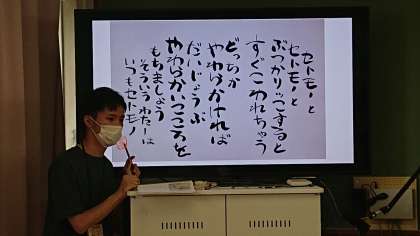 セトモノと
セトモノと
ぶつかりッこすると
すぐこわれちゃう
どっちか
やわらかければ
だいじょうぶ
やわらかいこころを
もちましょう
そういうわたしは
いつもセトモノ